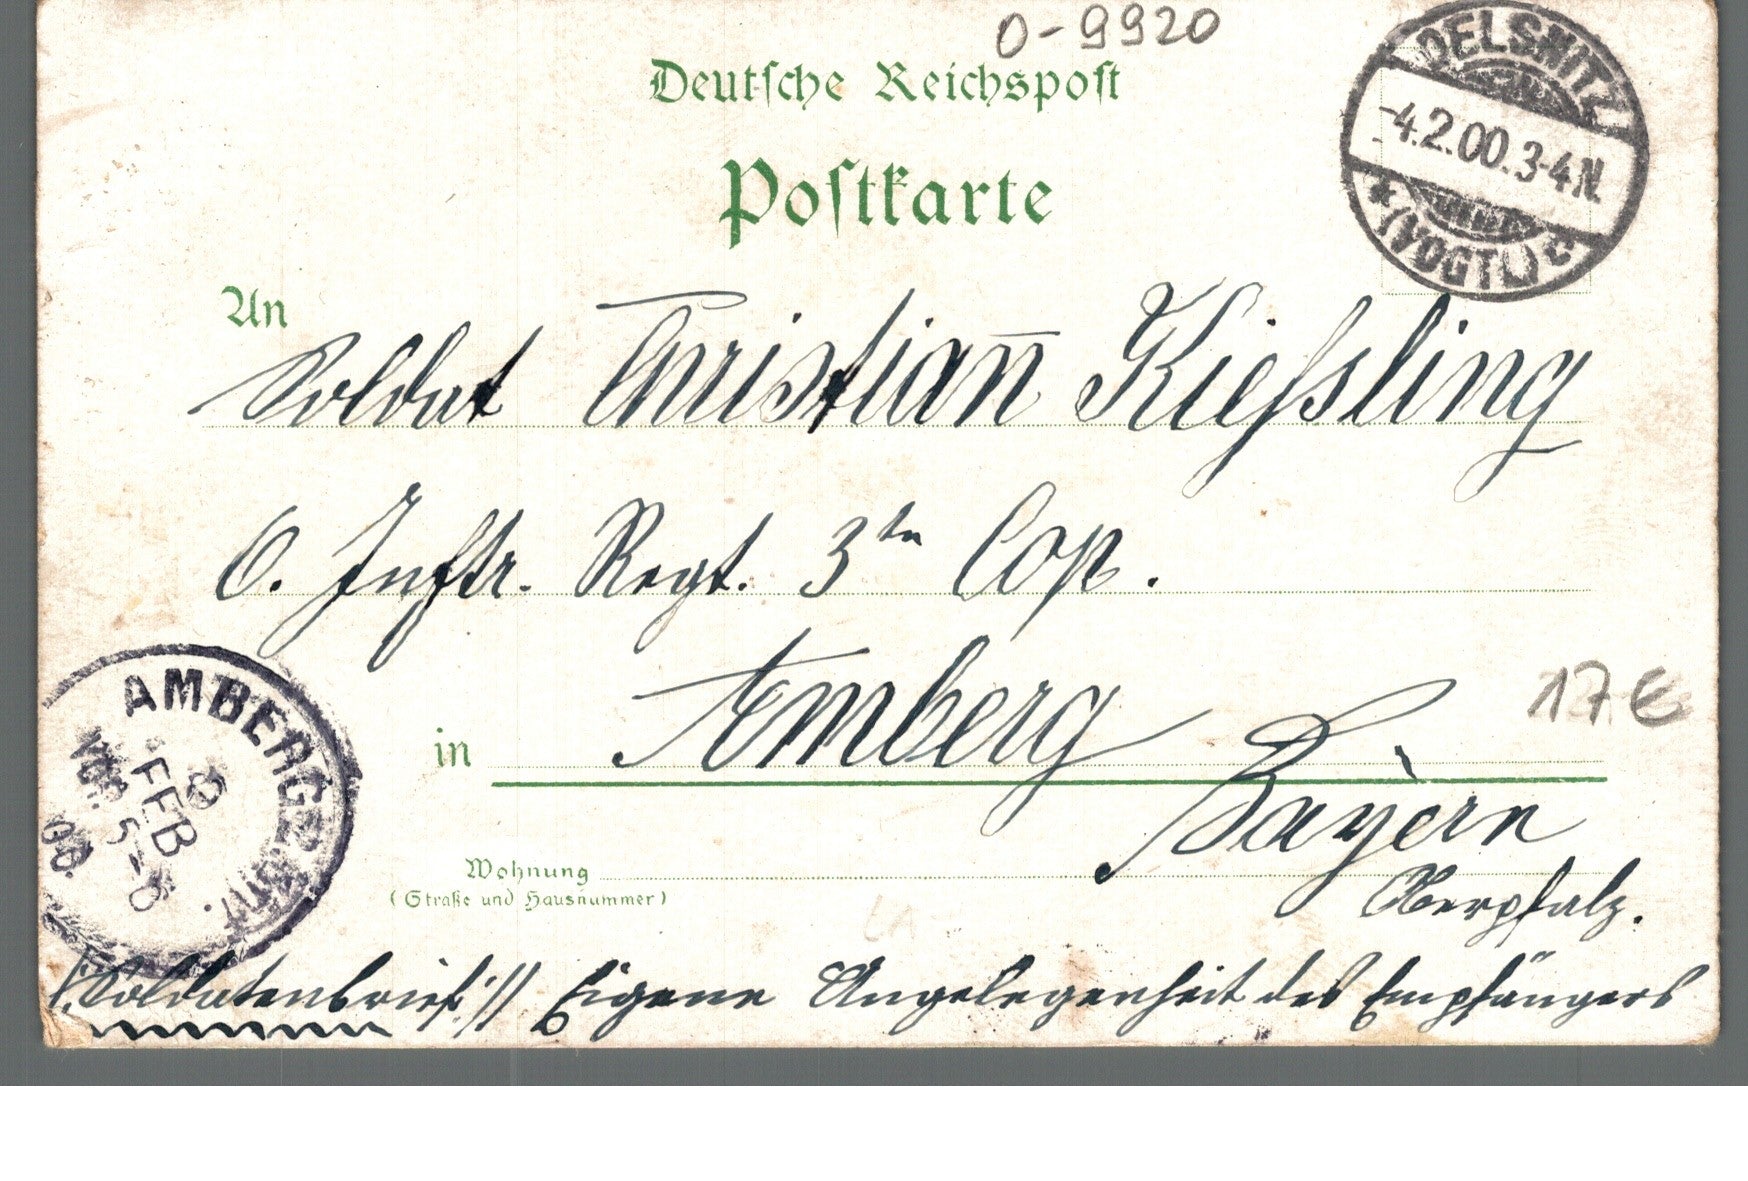 0-9920
Deutsche Reichspost
Postkarte
OELSNITZ
-4.2.00.3-4N.
* (VOGTL) c
An
Soldat Christian Kießling
6. Inftr. Regt. 3te Cop.
in Amberg
Bayern
Oberpfalz.
17 €
AMBERG
FEB
VOR. 5-6
00
Wohnung
(Straße und Hausnummer)
/:Soldatenbrief:// Eigene Angelegenheit des Empfängers